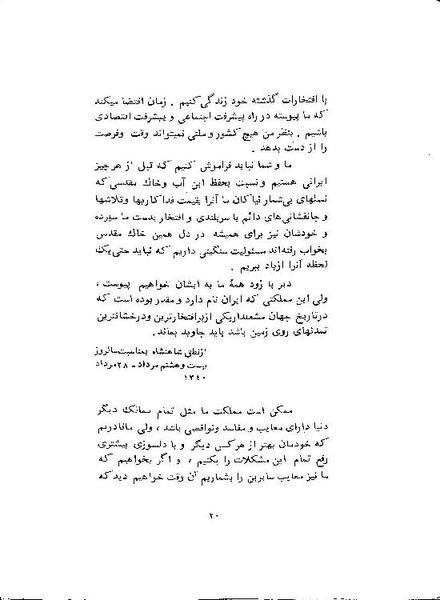 با افتخارات گذشته خود زندگی کنیم . زمان اقتضا میکند
که ما پیوسته در راه پیشرفت اجتماعی و پیشرفت اقتصادی
باشیم . بنظر من هیچ کشور و ملتی نمیتواند وقت وفرصت
را از دست بدهد .
ما و شما نباید فراموش کنیم که قبل از هر چیز
ایرانی هستیم و نسبت بحفظ این آب وخاك مقدسی که
نسلهای بی‌شمار نیاکان ما آنرا بقیمت فداکاریها وتلاشها
و جانفشانی‌های دائم با سربلندی و افتخار بدست ما سپرده
و خودشان نیز برای همیشه در دل همین خاك مقدس
بخواب رفته‌اند مسئولیت سنگینی داریم که نباید حتی یك
لحظه آنرا ازیاد ببریم .
دیر یا زود همهٔ ما به ایشان خواهیم پیوست ،
ولی این مملکتی که ایران نام دارد و مقدر بوده است که
درتاریخ جهان مشعلدار یکی ازپرافتخارترین ودرخشانترین
تمدنهای روی زمین باشد باید جاوید بماند.
ازنطق شاهنشاه بمناسبت سالروز
بیست و هشتم مرداد - ۲۸ مرداد
۱۳۴۰
ممکن است مملکت ما مثل تمام ممالك دیگر
دنیا دارای معایب و مفاسد ونواقصی باشد ، ولی ما قادریم
که خودمان بهتر از هر کسی دیگر و با دلسوزی بیشتری
رفع تمام این مشکلات را بکنیم ، و اگر بخواهیم که
ما نیز معایب سایرین را بشماریم آن وقت خواهیم دید که
۲۰